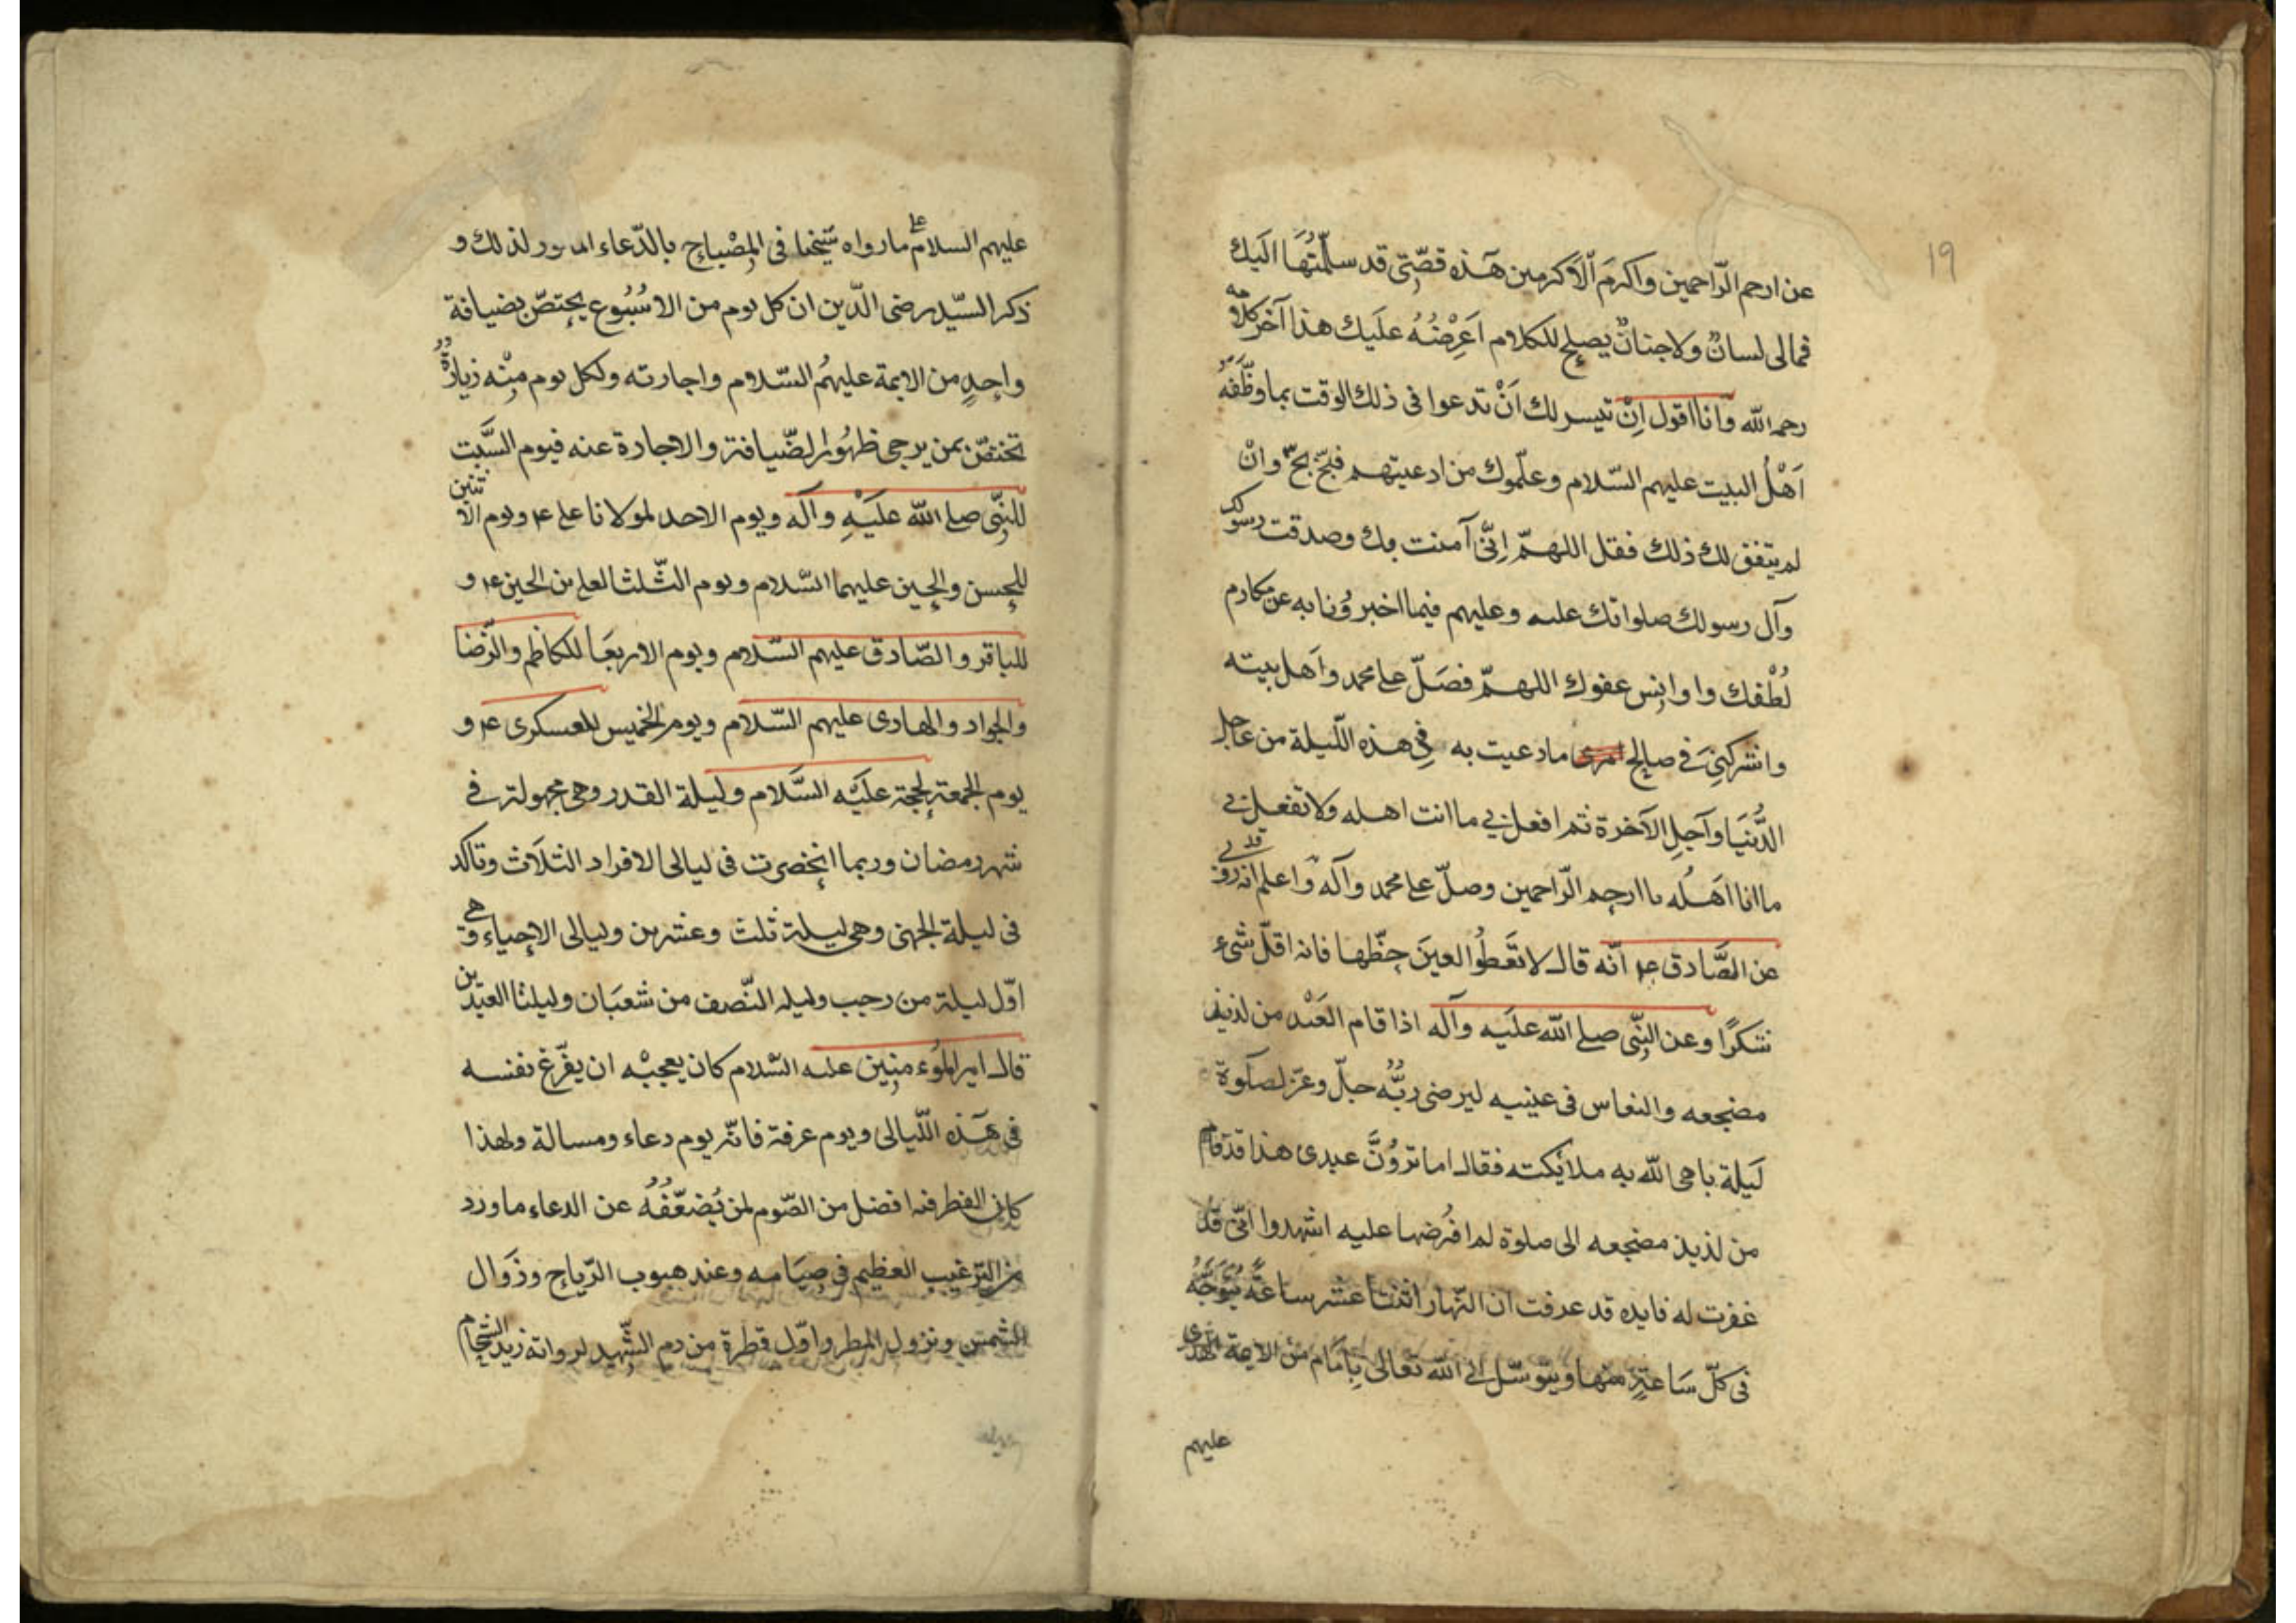 19
عن ارحم الرّاحمين واكرمَ الاكرمين هَذه قصّتى قد سلّمتُهَا اليَك
فمالى لسانٌ ولا جنانٌ يصلح للكلام اَعرِضُهُ علَيك هذا آخر كلامه
رحمه الله وَانا اقول اِنْ تيسر لك اَنْ تدعوا فى ذلك الوقت بما وظّفَهُ
اَهْلُ البيَت عليهم السّلام وعلّموك من ادعيتهم فبخّ بخّ وانْ
لم يتفق لك ذلك فقل اللهمّ اِنّى آمنت بك وصدقت رسولك
وآل رسولك صلواتك عليه وعليهم فيما اخبرُونا به عن مكارم
لُطْفك واوانس عفوك اللهمّ فصَلّ على محمد واَهل بيته
واشركنى فى صالح ما دعيت به فى هذه اللّيلة من عاجل
الدُّنيَا وآجلِ الآخرة ثم افعل بى ما انت اهله ولا تفعل بى
ما انا اهَلُه يا ارحم الرّاحمين وصلّ على محمد وآله واعلم انه قد روى
عن الصَّادق ع انّه قال لا تعَطُوا العينَ حظّها فانه اقلّ شىء
شكرًا وعن النبّى صلى الله عليَه وآله اذا قام العَبْد من لذيذ
مضجعه والنعاس فى عينيه ليرضى ربُّه جلّ وعزّ لصلَوة
لَيلة باهى الله به ملائكته فقال اما ترَوُنَّ عبدى هذا قد قام
من لذيذ مضجعه الى صلوة لم افرُضها عليه اشهدوا انّى قد
غفرت له فايده قد عرفت ان النّهار اثنتا عشر ساعةً يتُوَجّهُ
فى كلّ سَاعةٍ منها ويتوسّل الى الله تعالى بِامَام من الائمة الهدى
عليهم
عليهم السلام على ما رواه شيخنا فى المِصْباح بالدّعاء لذلك و
ذكر السيّد رضى الدّين ان كل يوم من الاسُبُوع يختصّ بضيافة
واحدٍ من الائمة عليهمُ السّلام واجارته ولكل يوم مِنْه زيارةٌ
تختصّ بمن يرجى ظهُور الضّيافة والاجارة عنه فيوم السَّبت
للنبّى صلى الله عليَهِ وآله ويوم الاحد لمولانا على ع ويوم الاثنين
للحسن والحسين عليهما السّلام ويوم الثّلثا لعلى بن الحسين ع و
للباقر والصّادق عليهم السّلام ويوم الاربعَا للكاظم والرّضا
والجواد والهادى عليهم السّلام ويوم الخميس للعسكرى ع و
يوم الجمعة لحجة عليَه السَّلام وليلة القدر وهى مجهولة فى
شهر رمضان وربما انحصرت فى ليالى الافراد الثلَاث وتاكد
فى ليلة الجهنى وهى ليلة ثلث وعشرين وليالى الاحياء وهى
اوّل ليلة من رجب وليله النّصف من شعبَان وليلتا العيدين
قال امير المُوءمنِين عليه السّلام كان يعجبْه ان يفّرغ نفسه
فى هَذه اللّيالى ويوم عرفة فانّه يوم دعاء ومسالة ولهذا
كان الفطر فيه افضل من الصّوم لمن يُضعّفُهُ عن الدعاء ما ورد
من الترغيب العظيم فى صيَامه وعند هبوب الرّياح وزَوال
الشمس ونزول المطر واوّل قطرة من دم الشّهيد لرواية زيد الشحام